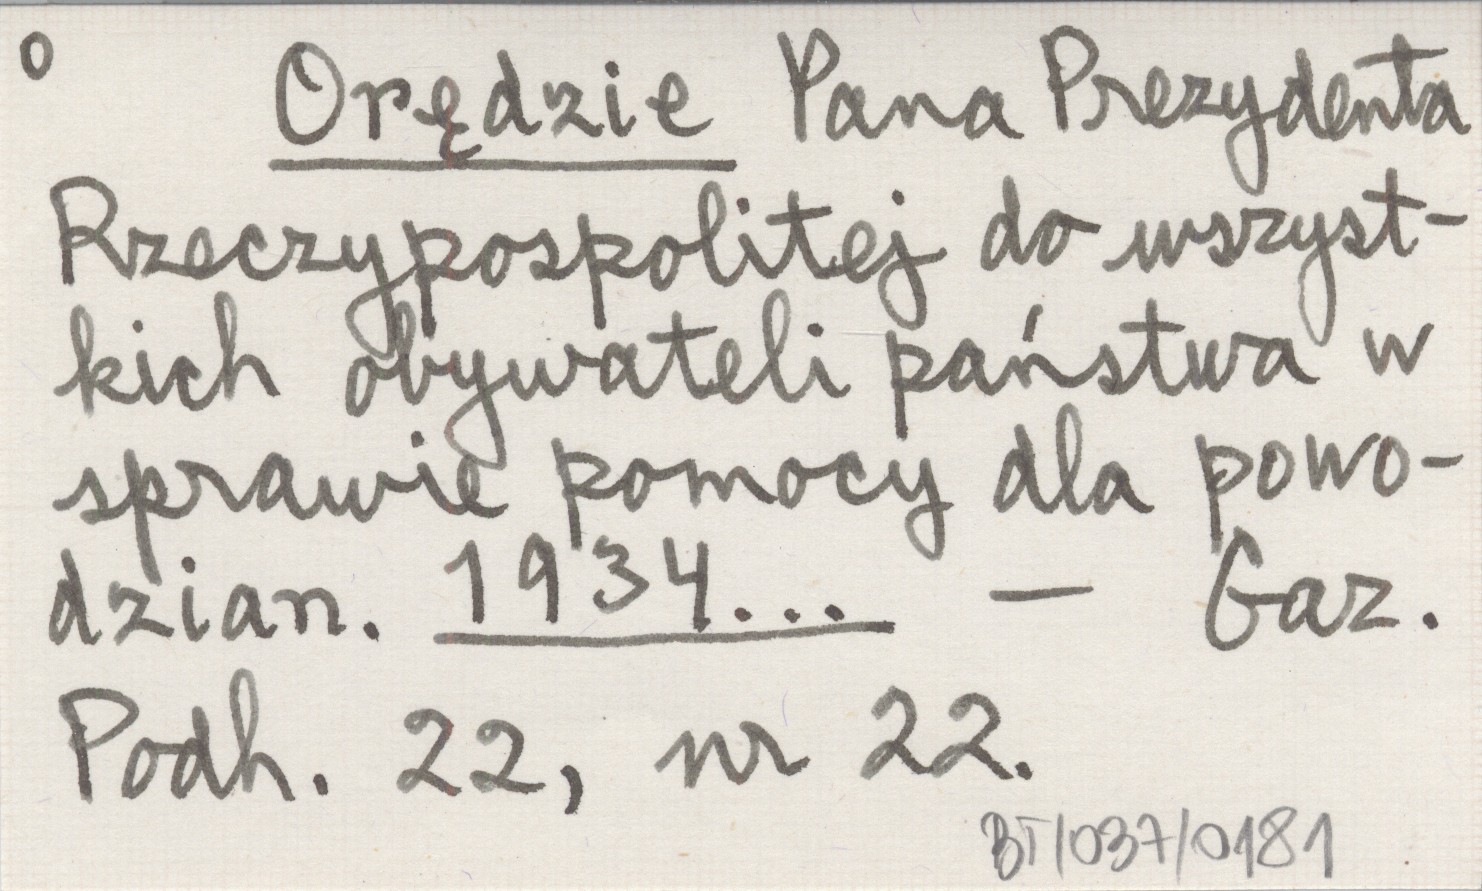 o Orędzie Pana Prezydenta
Rzeczypospolitej do wszyst-
kich obywateli państwa w
sprawie pomocy dla powo-
dzian. 1934... — Gaz.
Podh. 22, nr 22.
BT/037/0181